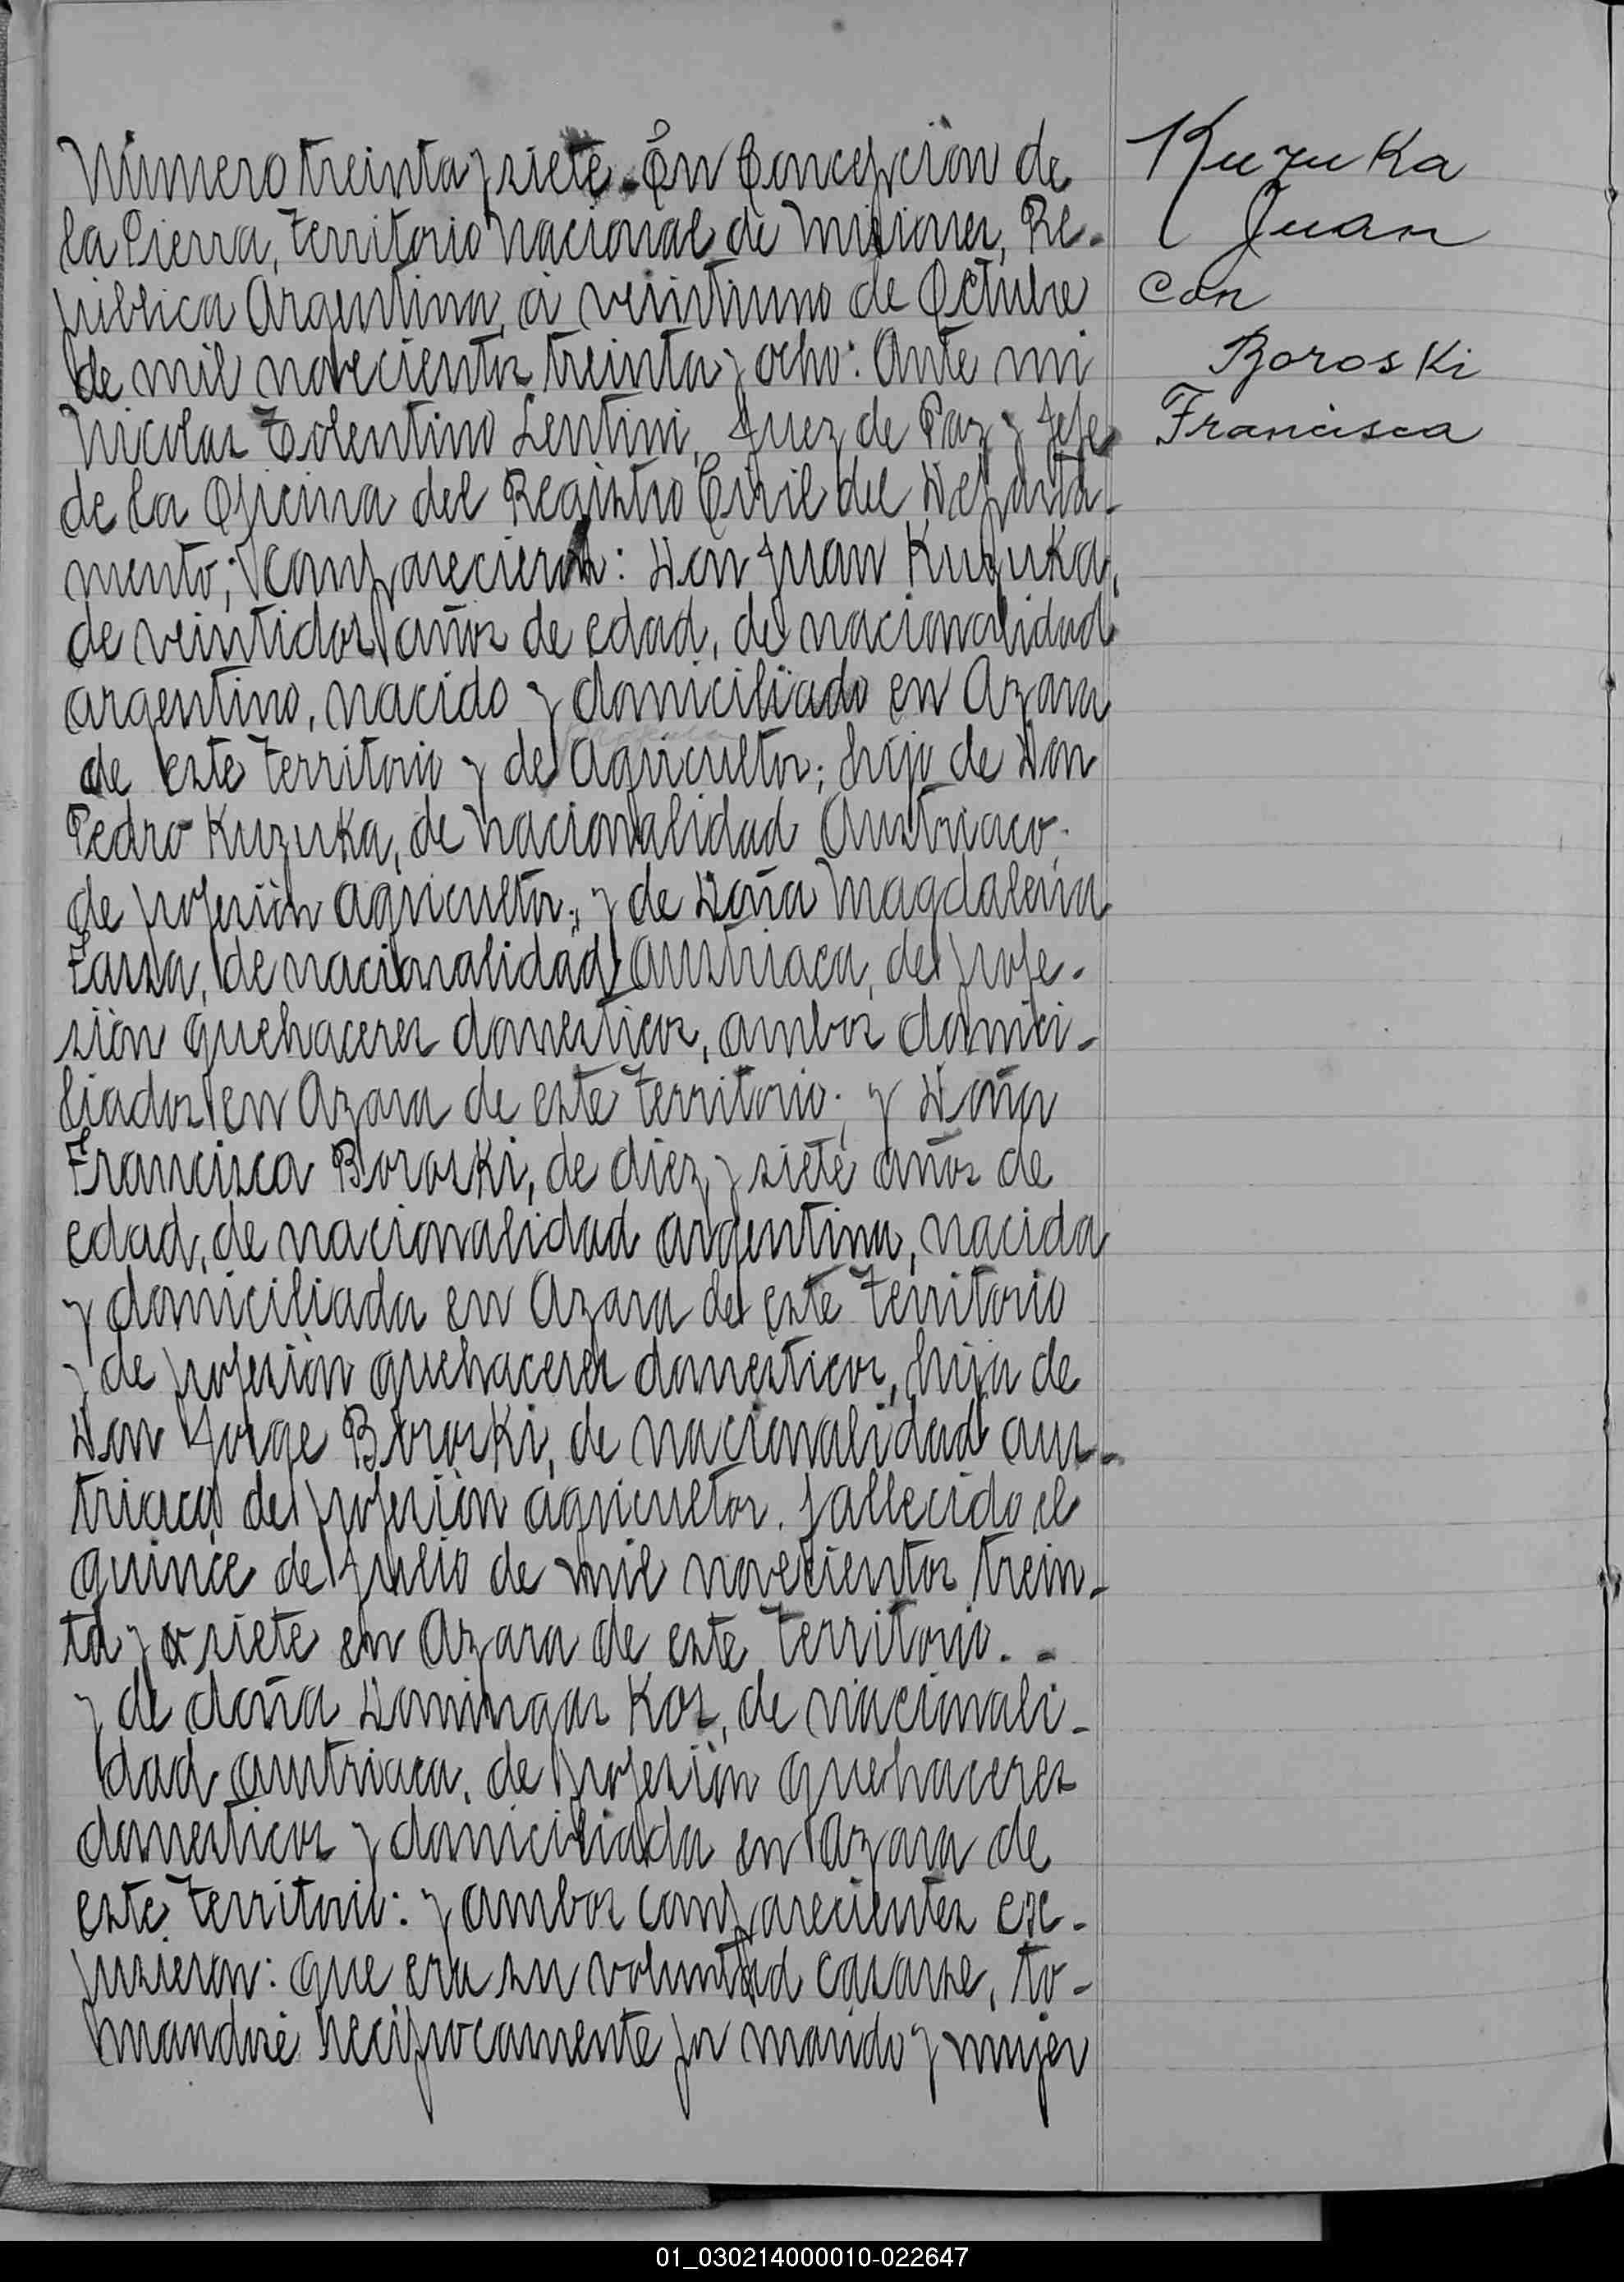 Número treinta y siete. En Concepción de
la Sierra, Territorio Nacional de Misiones, Re-
pública Argentina, á veintiuno de Octubre
de mil novecientos treinta y ocho: Ante mi
Nicolas Tolentino Lentini, Juez de Paz y Jefe
de la Oficina del Registro Civil del Departa-
mento; comparecieron: Don Juan Kuzuka,
de veintidos años de edad, de nacionalidad
argentino, nacido y domiciliado en Azara
de este Territorio y de agricultor; hijo de Don
Pedro Kuzuka, de nacionalidad Austriaco,
de profesión agricultor, y de Doña Magdalena
de nacionalidad austriaca, de profe-
sión quehaceres domesticos, ambos domici-
liados en Azara de este Territorio; y Doña
Francisca Boroski, de diez y siete años de
edad, de nacionalidad argentina, nacida
y domiciliada en Azara de este Territorio
y de profesión quehaceres domesticos, hija de
Don Jorge Boroski, de nacionalidad aus-
triaco de profesión agricultor. fallecido el
quince de Julio de mil novecientos trein-
ta y siete en Azara de este Territorio. -
y de doña Domingas Kos, de nacionali-
dad autriaca, de profesión quehaceres
domesticos y domiciliada en Azara de
este Territorio: y ambos comparecientes ex-
pusieron: que era su voluntad casarse, to-
mandose recíprocamente por marido y mujer
Kuzuka
Juan
con
Boroski
Francisca
01_030214000010-022647